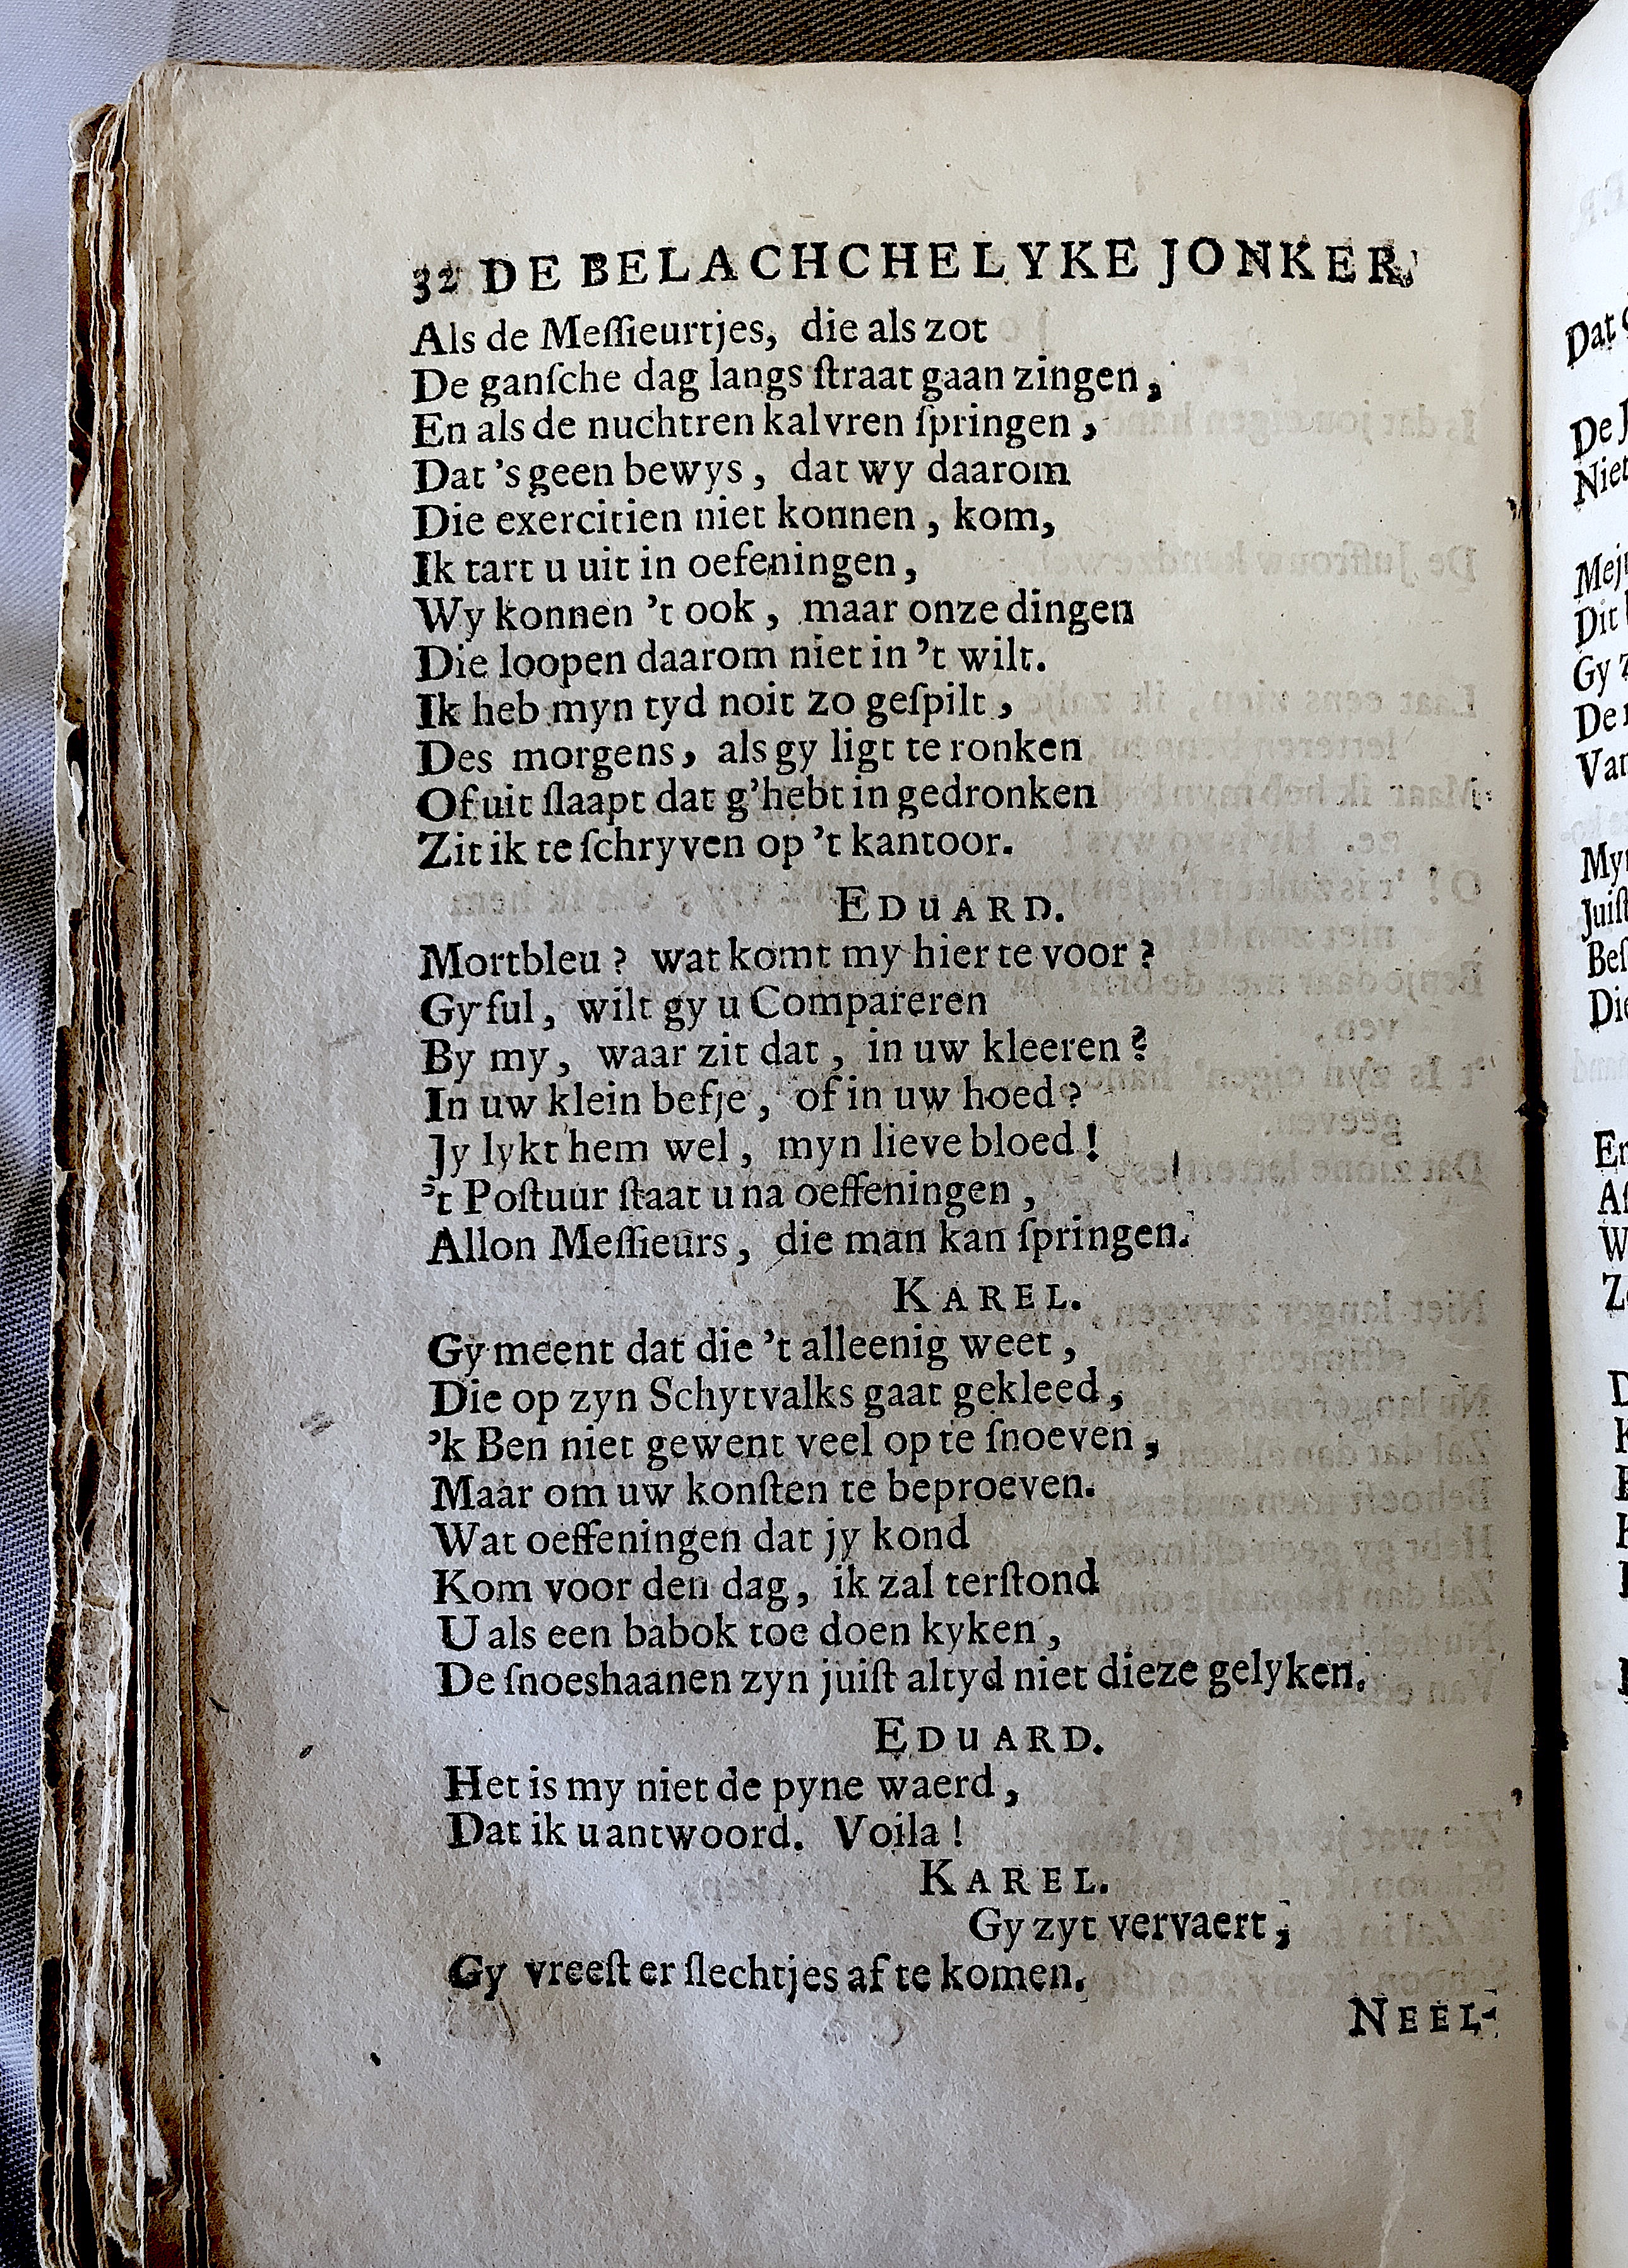 32 DE BELACHCHELYKE JONKER,
Als de Meſſieurtjes, die als zot
De ganſche dag langs ſtraat gaan zingen,
En als de nuchtren kalvren ſpringen,
Dat 's geen bewys, dat wy daarom
Die exercitien niet konnen, kom,
Ik tart u uit in oefeningen,
Wy konnen 't ook, maar onze dingen
Die loopen daarom niet in 't wilt.
Ik heb myn tyd noit zo geſpilt,
Des morgens, als gy ligt te ronken
Of uit ſlaapt dat g'hebt in gedronken
Zit ik te ſchryven op 't kantoor.
EDUARD.
Mortbleu? wat komt my hier te voor?
Gy ſul, wilt gy u Compareren
By my, waar zit dat, in uw kleeren?
In uw klein befje, of in uw hoed?
Jy lykt hem wel, myn lieve bloed!
't Poſtuur ſtaat u na oeffeningen,
Allon Meſſieurs, die man kan ſpringen.
KAREL.
Gy meent dat die 't alleenig weet,
Die op zyn Schytvalks gaat gekleed,
'k Ben niet gewent veel op te ſnoeven,
Maar om uw konſten te beproeven.
Wat oeffeningen dat jy kond
Kom voor den dag, ik zal terſtond
U als een babok toe doen kyken,
De ſnoeshaanen zyn juiſt altyd niet dieze gelyken.
EDUARD.
Het is my niet de pyne waerd,
Dat ik u antwoord. Voila!
KAREL.
Gy zyt vervaert,
Gy vreeſt er ſlechtjes af te komen.
NEEL-
Dat
De
Niet
Dit
Gy